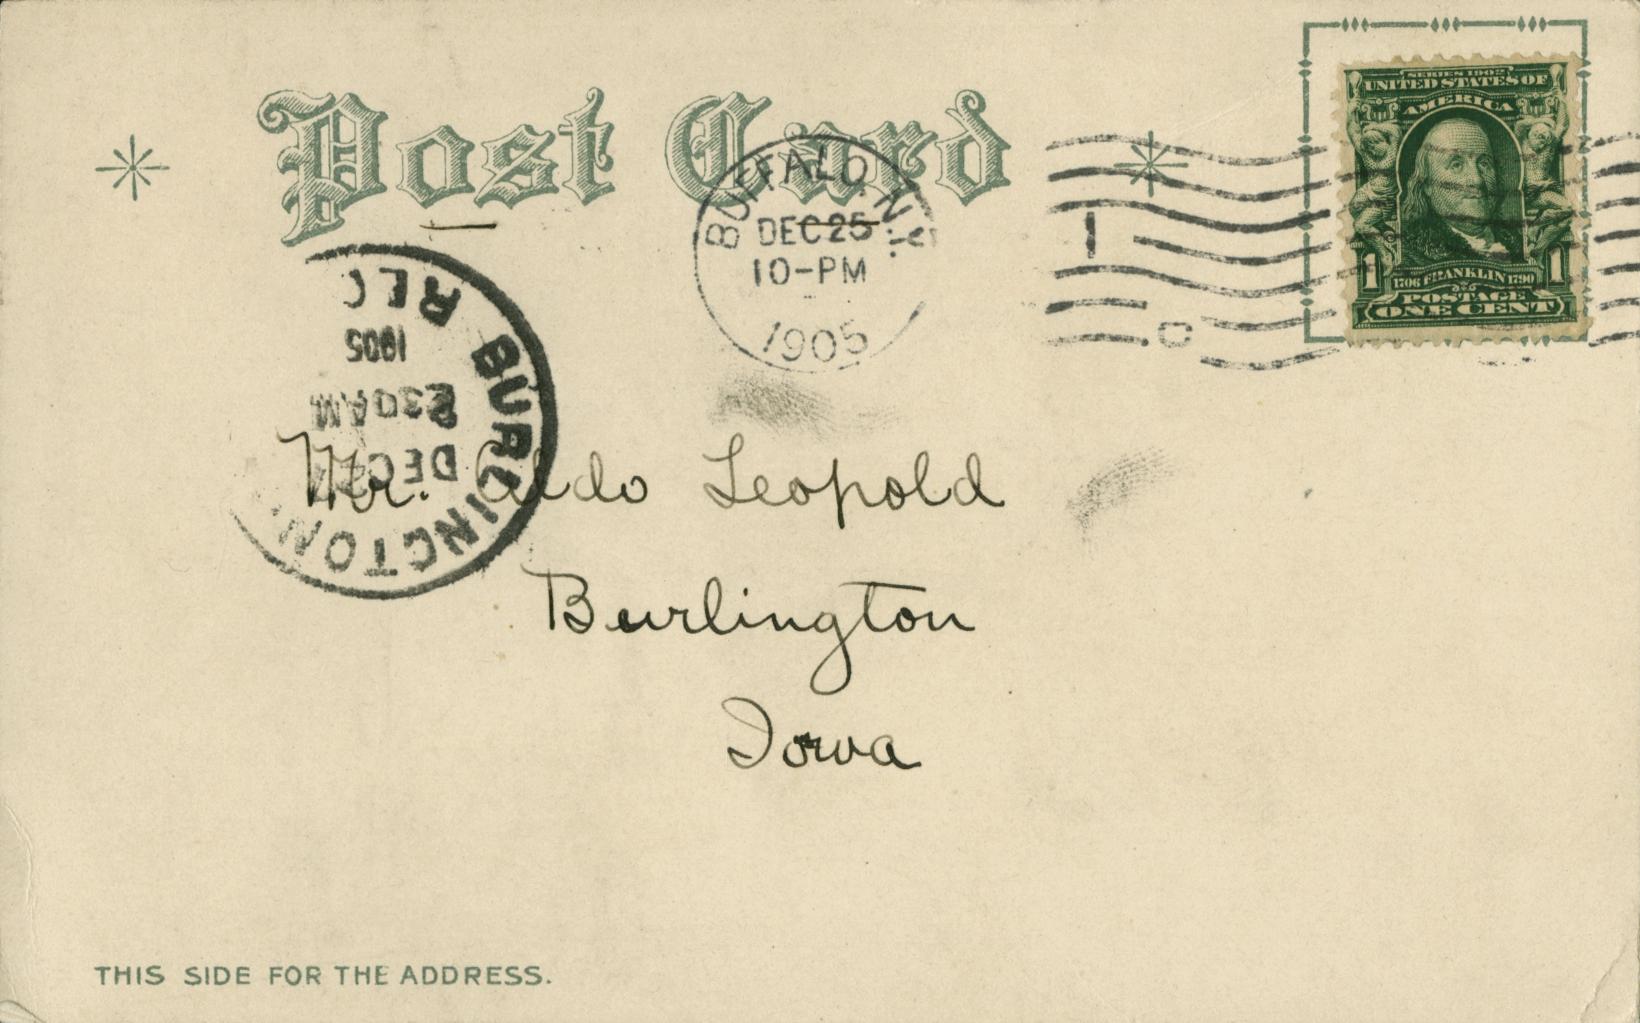 Post Card
SERIES 1902
UNITED STATES OF
AMERICA
1706 FRANKLIN 1790
1 1
POSTAGE
ONE CENT
BUFFALO, N.Y.
DEC 25
10-PM
1905
1
C
BURLINGTON,
DEC
230AM
1905
REC
Mr. Aldo Leopold
Burlington
Iowa
THIS SIDE FOR THE ADDRESS.